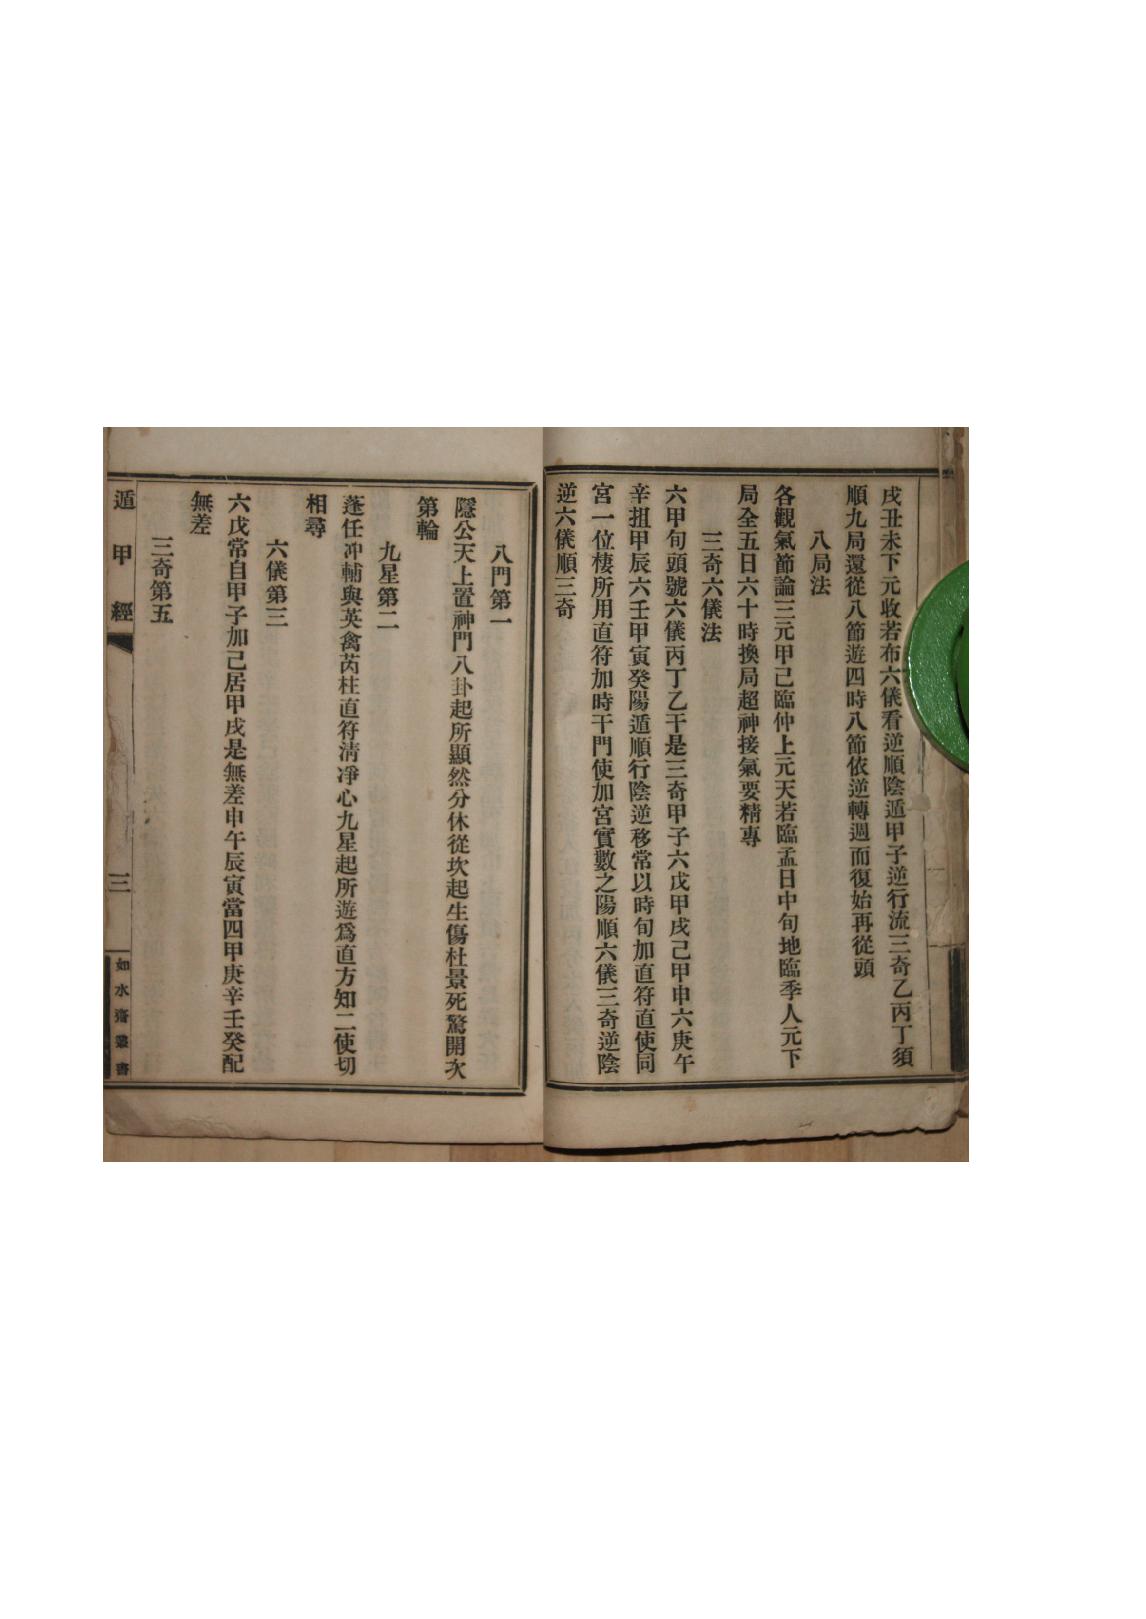 戌丑未下元收若布六儀看逆順陰遁甲子逆行流三奇乙丙丁須
順九局還從八節遊四時八節依逆轉週而復始再從頭
八局法
各觀氣節論三元甲己臨仲上元天若臨孟日中旬地臨季人元下
局全五日六十時換局超神接氣要精專
三奇六儀法
六甲旬頭號六儀丙丁乙干是三奇甲子六戊甲戌己甲申六庚午
辛扭甲辰六壬甲寅癸陽遁順行陰逆移常以時旬加直符直使同
宮一位棲所用直符加時干門使加宮實數之陽順六儀三奇逆陰
逆六儀順三奇
八門第一
隱公天上置神門八卦起所顯然分休從坎起生傷杜景死驚開次
第輪
九星第二
蓬任冲輔與英禽芮柱直符淸凈心九星起所遊爲直方知二使切
相尋
六儀第三
六戊常自甲子加己居甲戌是無差申午辰寅當四甲庚辛壬癸配
無差
三奇第五
遁甲經
三
如水齋叢書